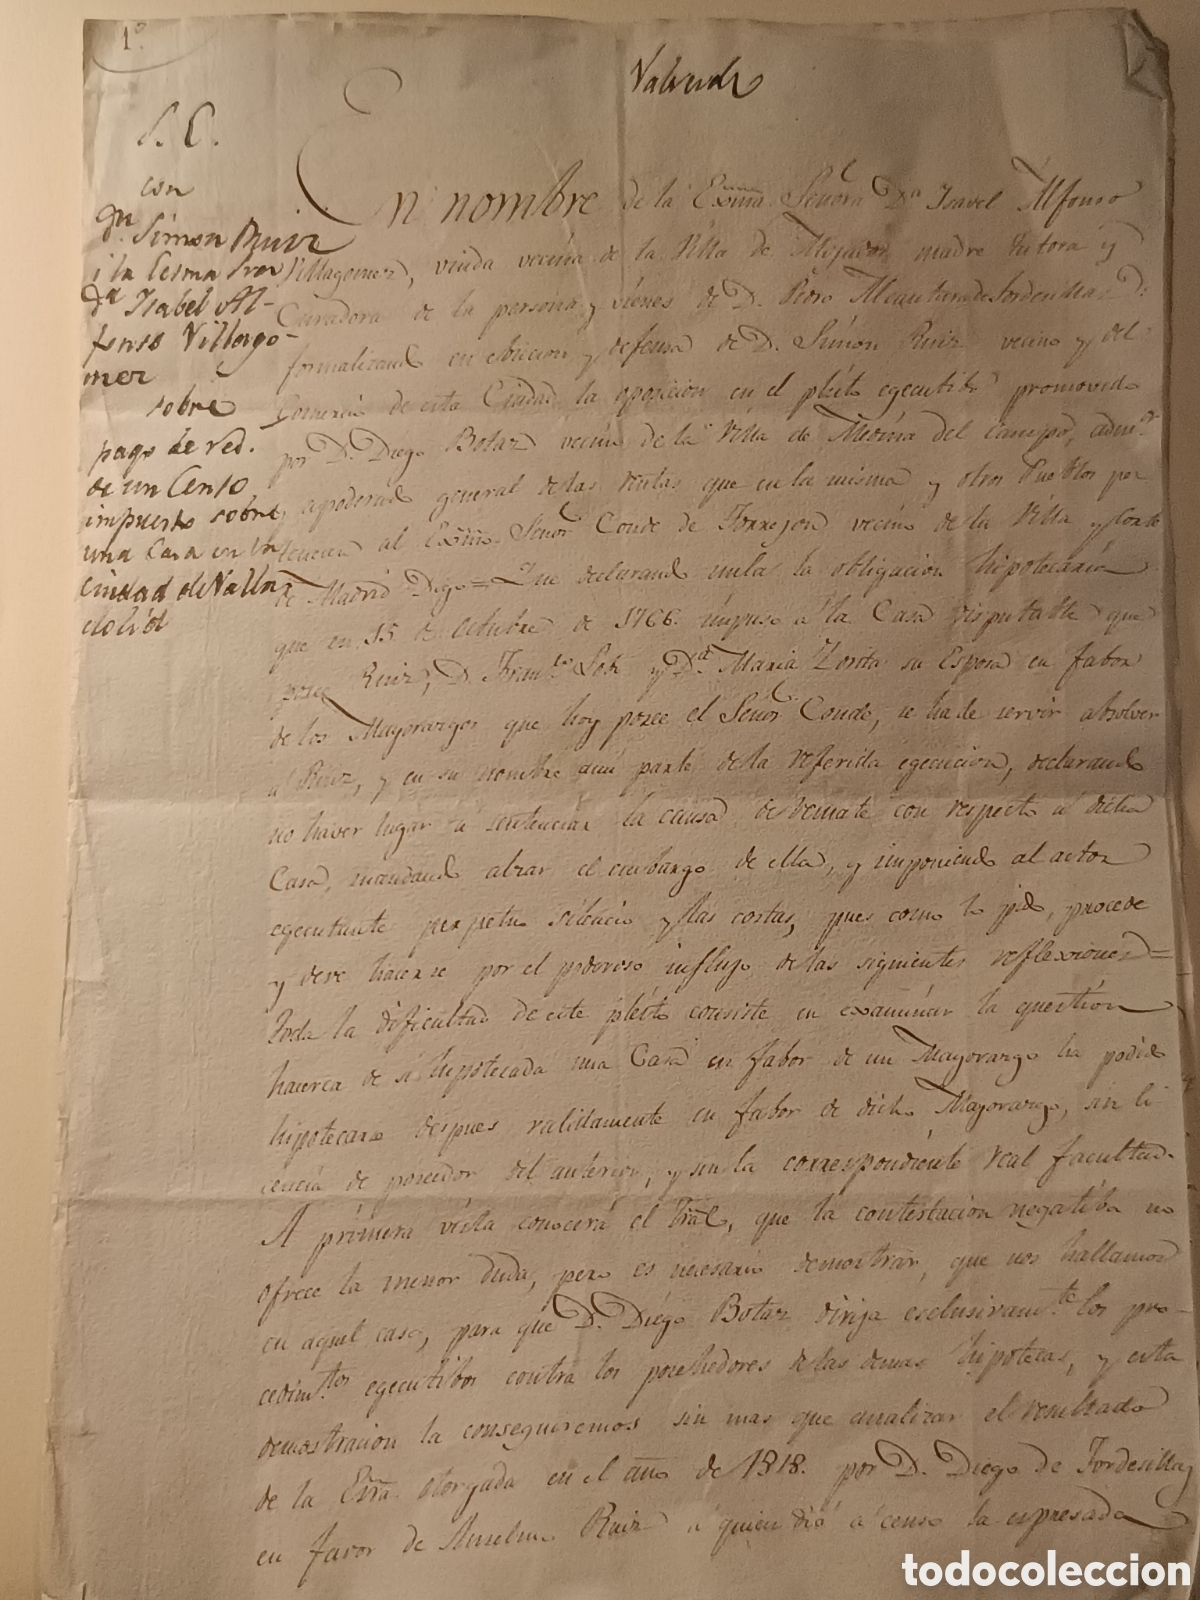 1º
Valverde
S. C.
con
Dn. Simon Ruiz
i la Exma Sra
Dª Isabel Al-
fonso Villago-
mez
sobre
pago de red.
de un Censo
impuesto sobre
una Casa en la
Ciudad de Valla-
dolid
En nombre de la Exma. Señora Dª Isavel Alfonso
Villagomez, viuda vecina de la Villa de Mojados, madre tutora y
Curadora de la persona y vienes de D. Pedro Alcantara de Tordesillas
formalizando en eviccion y defensa de D. Simón Ruiz vecino y del
Comercio de esta Ciudad la oposicion en el pleito egecutibo promovido
por D. Diego Botaz vecino de la Villa de Medina del Campo, admr.
y apoderado general de las rentas que en la misma y otros Pueblos per-
tenecen al Exmo. Señor Conde de Torrejon vecino de la Villa y Corte
de Madrid Digo = Que declarando nula la obligacion hipotecaria
que en 15 de octubre de 1766. impuso á la Casa disputable que
posee Ruiz, D. Franco. Lobo y Dª. Maria Zorita su Esposa en fabor
de los Mayorazgos que hoy posee el Señor Conde, se ha de servir absolver
á Ruiz, y en su nombre á mi parte de la referida egecucion, declarando
no haver lugar á sentenciar la causa de remate con respecto á dicha
Casa, mandando alzar el embargo de ella, y imponiendo al actor
egecutante perpetuo silencio y las costas, pues como lo pido, procede
y deve hacerse por el poderoso influjo de las siguientes reflexiones =
Toda la dificultad de este pléito consiste en exáminar la questión
hacerca de si hipotecada una Casa en fabor de un Mayorazgo ha podido
hipotecarse despues validamente en fabor de dicho Mayorazgo, sin li-
cencia de poseedor del anterior, y sin la correspondiénte real facultad.
A primera vista conocerá el Tral, que la contestacion negatiba no
ofrece la menor duda, pero es necesario demostrar, que nos hallamos
en aquel caso, para que D. Diégo Botaz dirija esclusivamte. los pro-
cedimtos. egecutibos contra los poseedores de las demas hipotecas, y esta
demostracion la conseguiremos sin mas que analizar el resultado
de la Esra. otorgada en el año de 1818. por D. Diego de Tordesillas
en favor de Anselmo Ruiz á quien dió á censo la espresada
todocoleccion